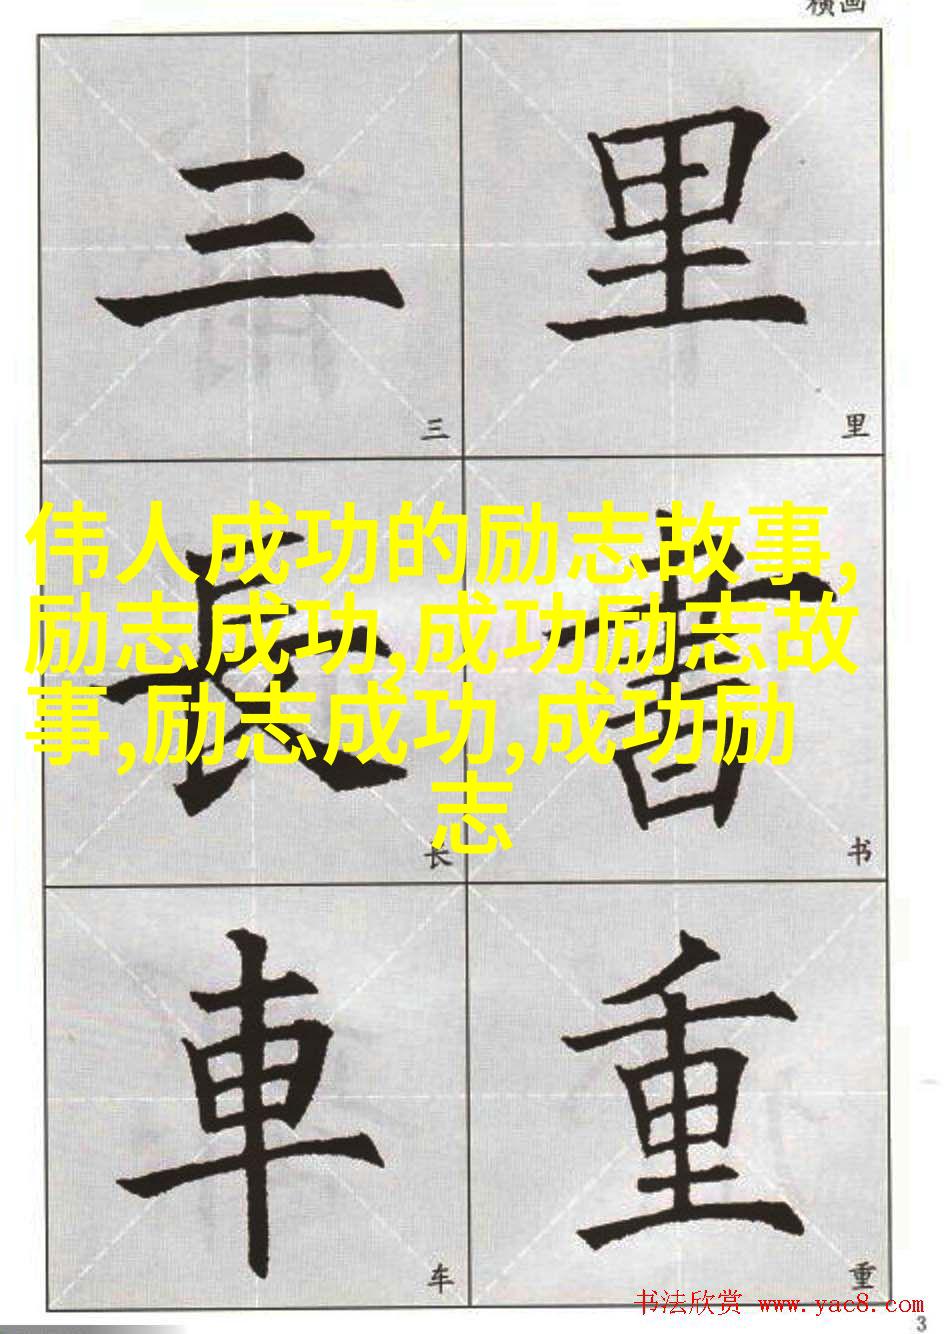 横画
三 里
三 里
伟人成功的励志故事,
励志成功,成功励志故
事,励志成功,成功励
志
長 書
长 书
車 重
车 重
书法欣赏 www.yac8.com
3